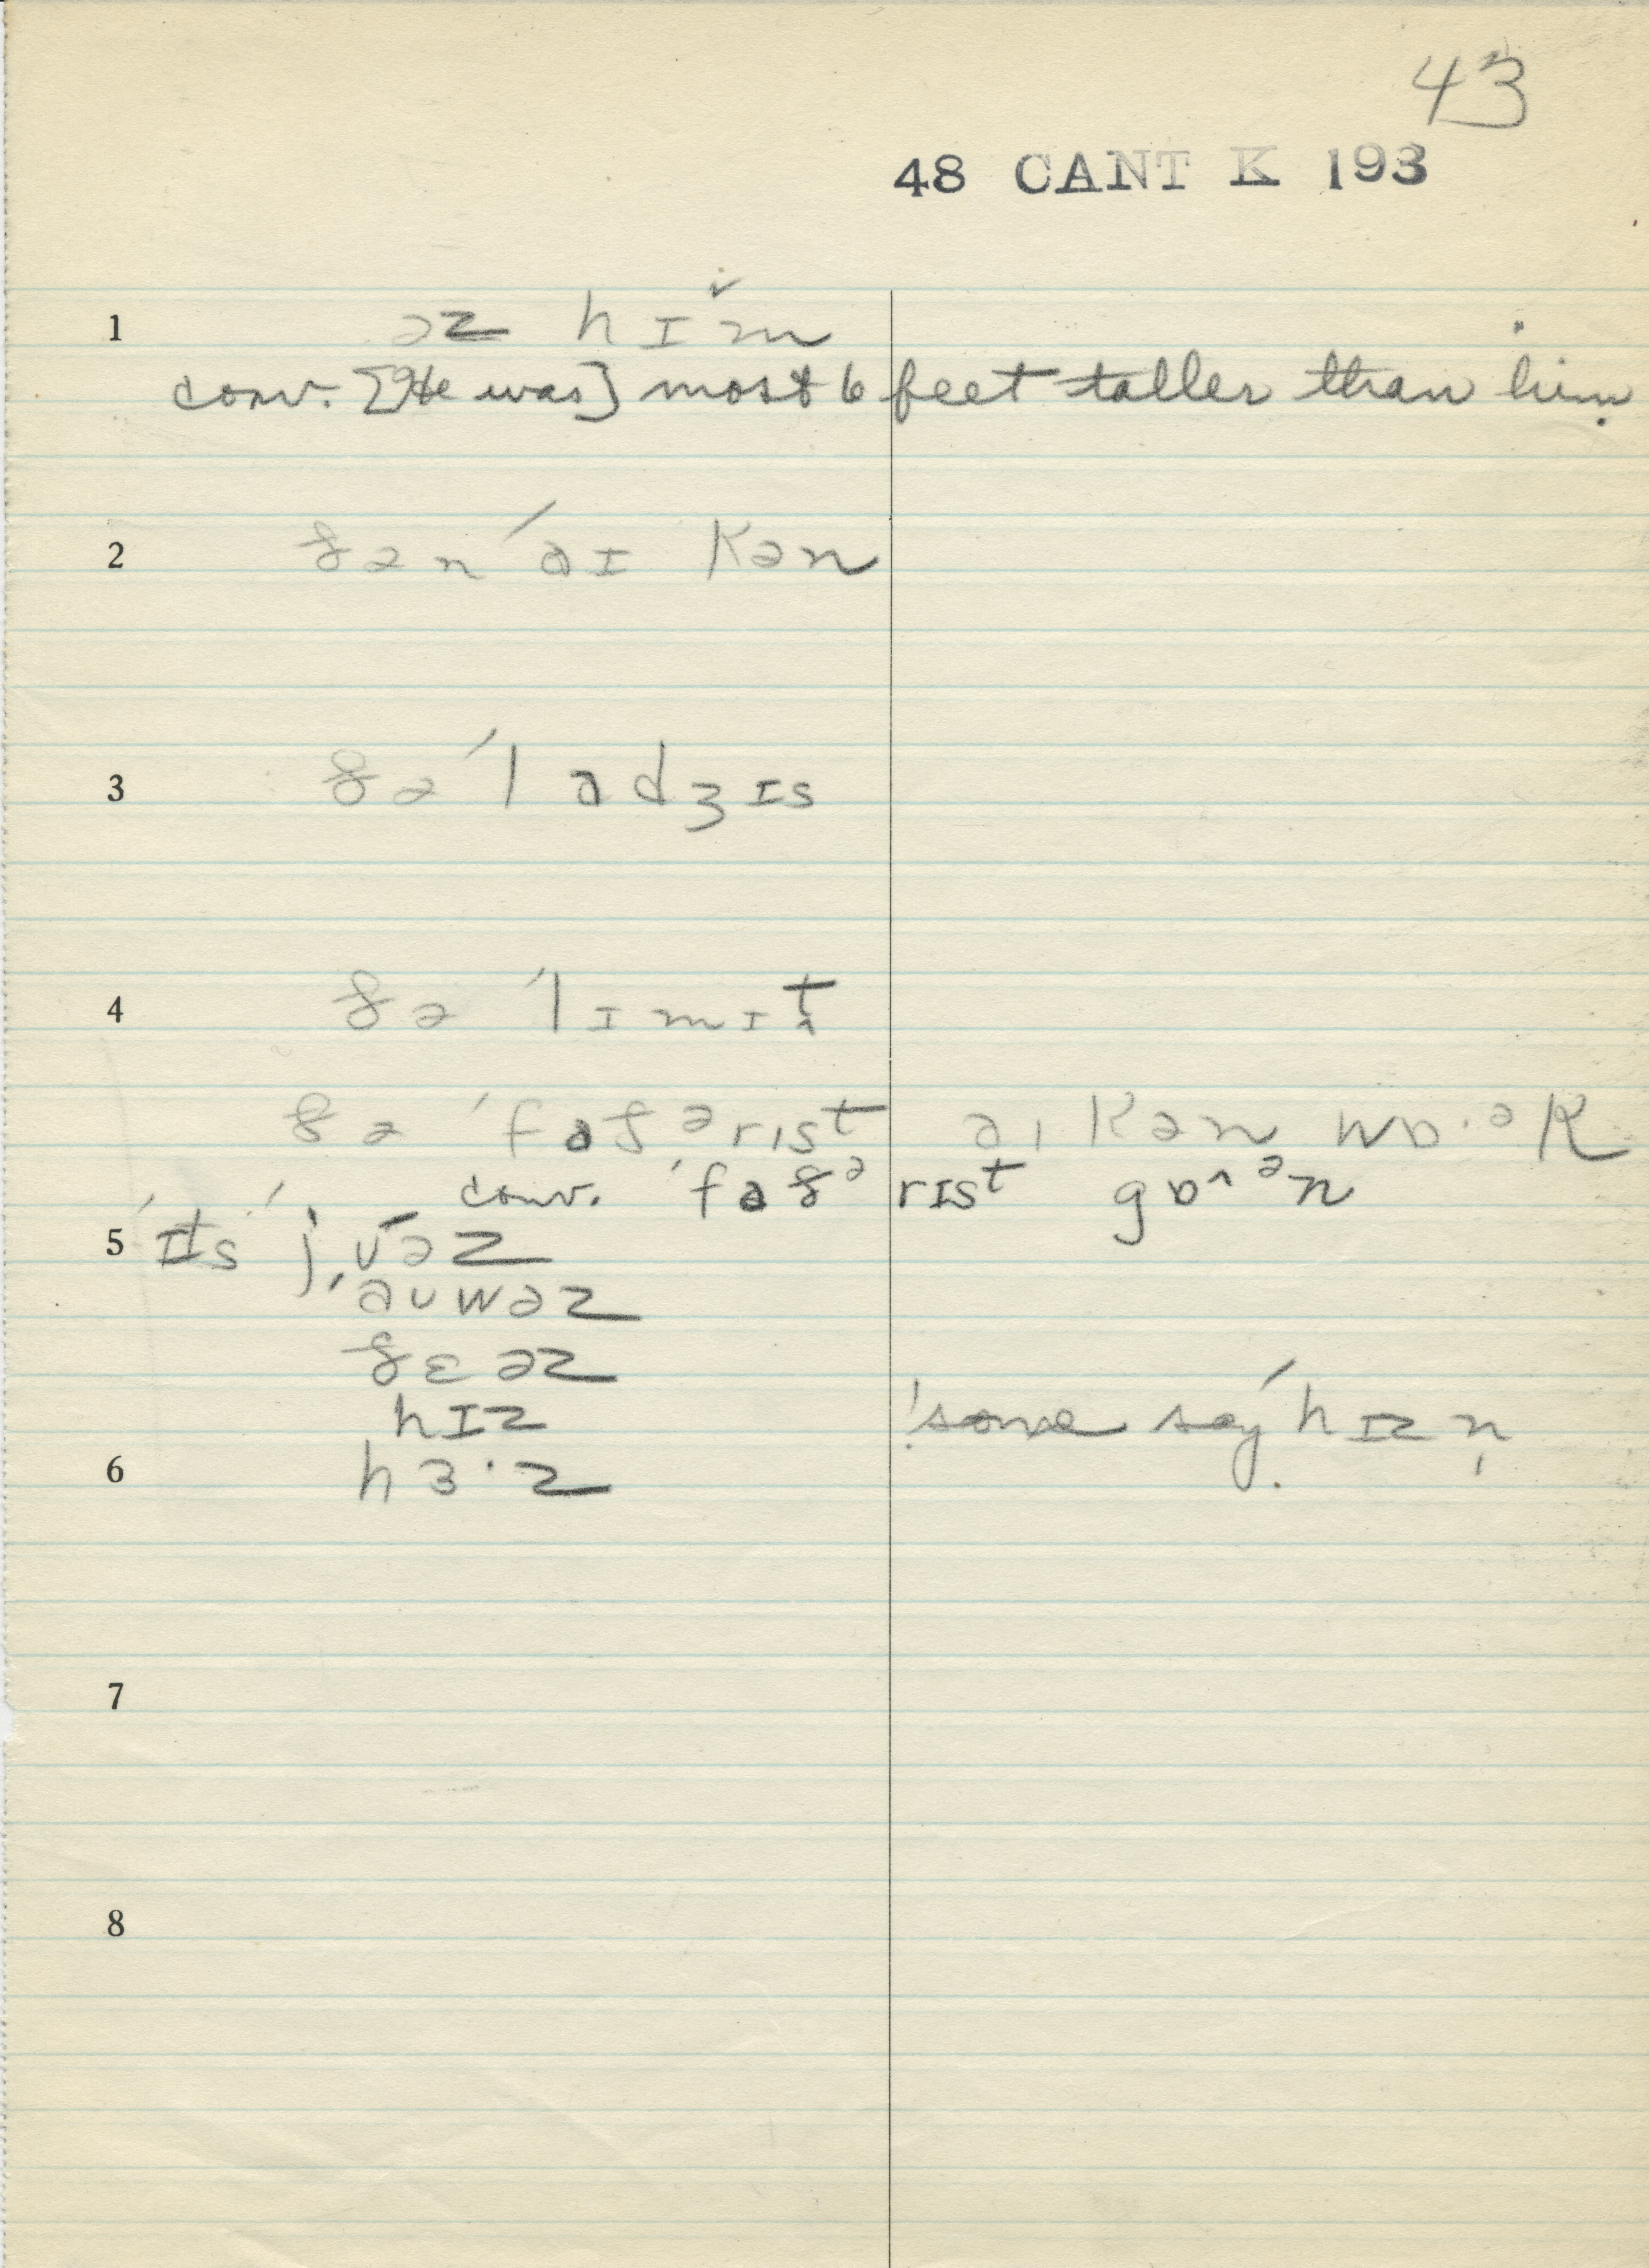 43
48 CANT K 193
1 əz hɪm
conv. [He was] most 6 feet taller than him
2 ðən ˈaɪ kən
3 ðə ˈladʒɪs
4 ðə ˈlɪmɪt
ðə ˈfaðərɪst aɪ kən wɒ·ək
conv. ˈfaðərɪst gɒ^ən
5 ˈɪts ˈjʊəz
ˈaʊwəz
ðɛəz
hɪz
'some say' hɪzn̩
6 hɜ·z
7
8